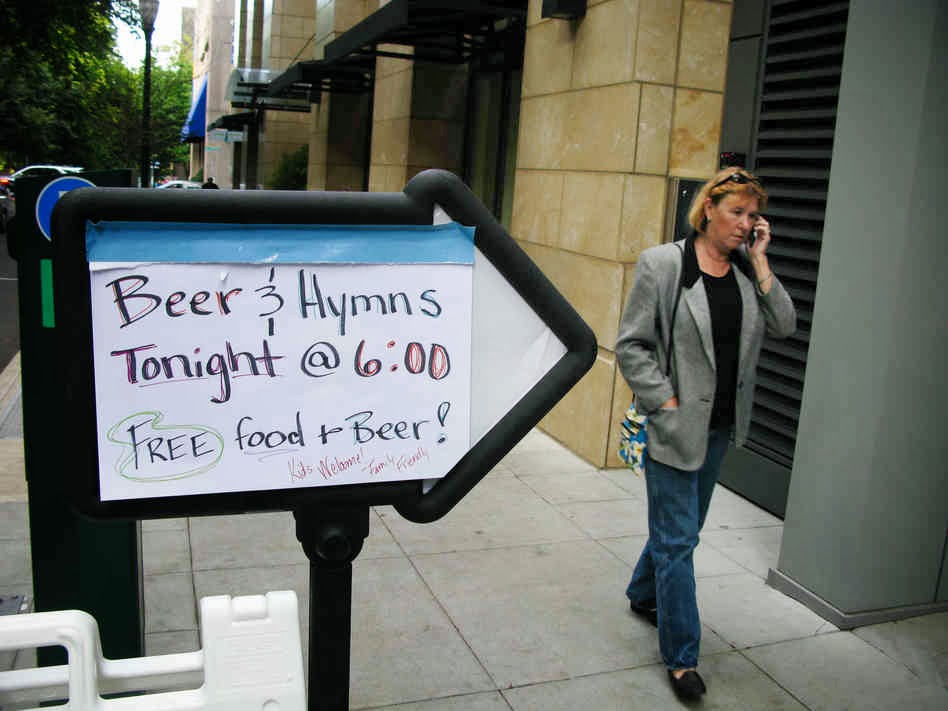 Beer & Hymns
Tonight @ 6:00
FREE food + Beer!
Kids Welcome! Family Friendly